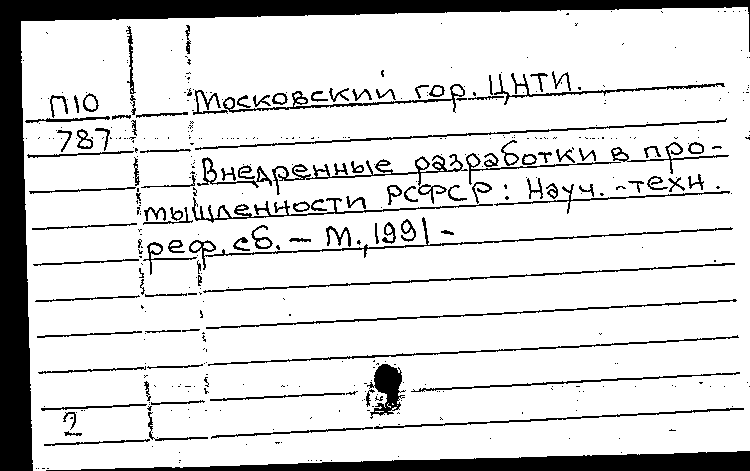 П10 Московский гор. ЦНТИ.
787
Внедренные разработки в про-
мышленности РСФСР: Науч.-техн.
реф. сб. - М., 1991 -
2